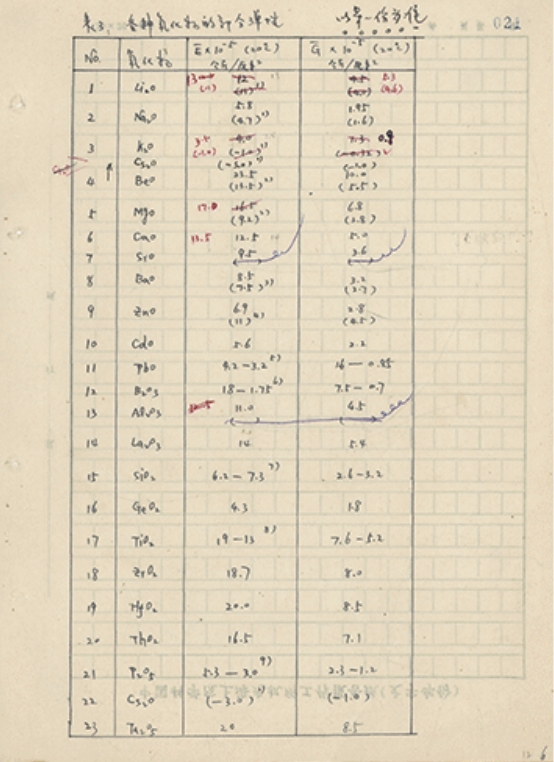 表3. 各种氧化物的计算弹性 以第一份为准 024
No. 氧化物 E̅ × 10⁻⁵ (20℃) 公斤/厘米² G̅ × 10⁻⁵ (20℃) 公斤/厘米²
1 Li₂O 12 (11)¹⁾ (11) 4.5 (4.0) 5.3 (4.6)
2 Na₂O 5.8 (4.7)²⁾ 1.95 (1.6)
3 K₂O 4.0 (-3.0)²⁾ (-3.0) 0.9
Cs₂O (-3.0)²⁾ (-1.0)
4 BeO 23.5 (13.5)²⁾ 10.0 (5.5)
5 MgO 17.0 16.5 (9.2)²⁾ 6.8 (3.8)
6 CaO 12.5 5.0
7 SrO 9.5 3.6
8 BaO 8.5 (7.5)³⁾ 3.2 (2.7)
9 ZnO 6.9 (11)⁴⁾ 2.8 (4.5)
10 CdO 5.6 2.2
11 PbO 4.2 – 3.2⁵⁾ 16 – 0.85
12 B₂O₃ 18 – 1.75⁶⁾ 7.5 – 0.7
13 Al₂O₃ 11.0 4.5
14 La₂O₃ 14 5.4
15 SiO₂ 6.2 – 7.3⁷⁾ 2.6 – 3.2
16 GeO₂ 4.3 1.8
17 TiO₂ 19 – 13⁸⁾ 7.6 – 5.2
18 ZrO₂ 18.7 8.0
19 HfO₂ 20.0 8.5
20 ThO₂ 16.5 7.1
21 P₂O₅ 5.3 – 3.0⁹⁾ 2.3 – 1.2
22 Cs₂O (-3.0)²⁾ (-1.0)
23 Ta₂O₅ 20 8.5
12 6